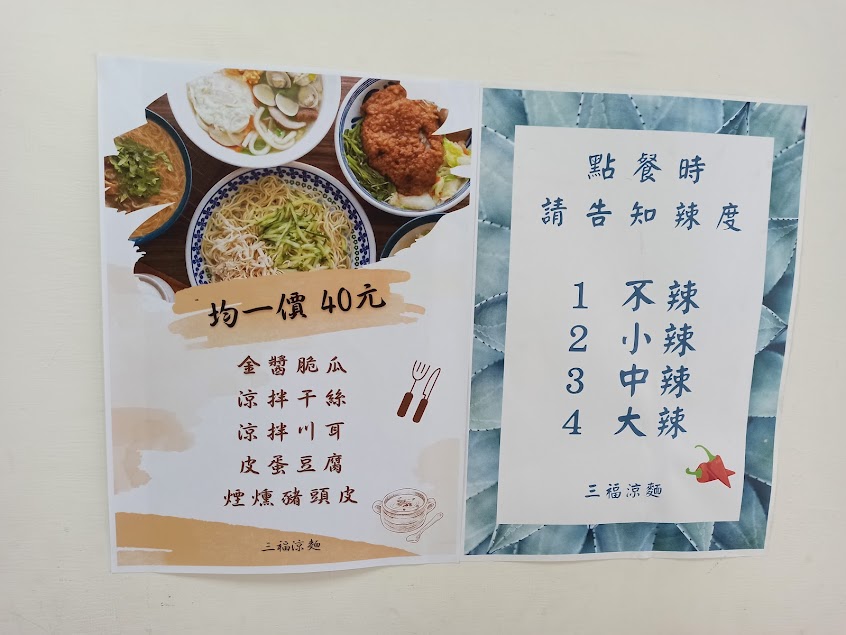 均一價 40元
金醬脆瓜
涼拌干絲
涼拌川耳
皮蛋豆腐
煙燻豬頭皮
三福涼麵
點餐時
請告知辣度
1 不辣
2 小辣
3 中辣
4 大辣
三福涼麵